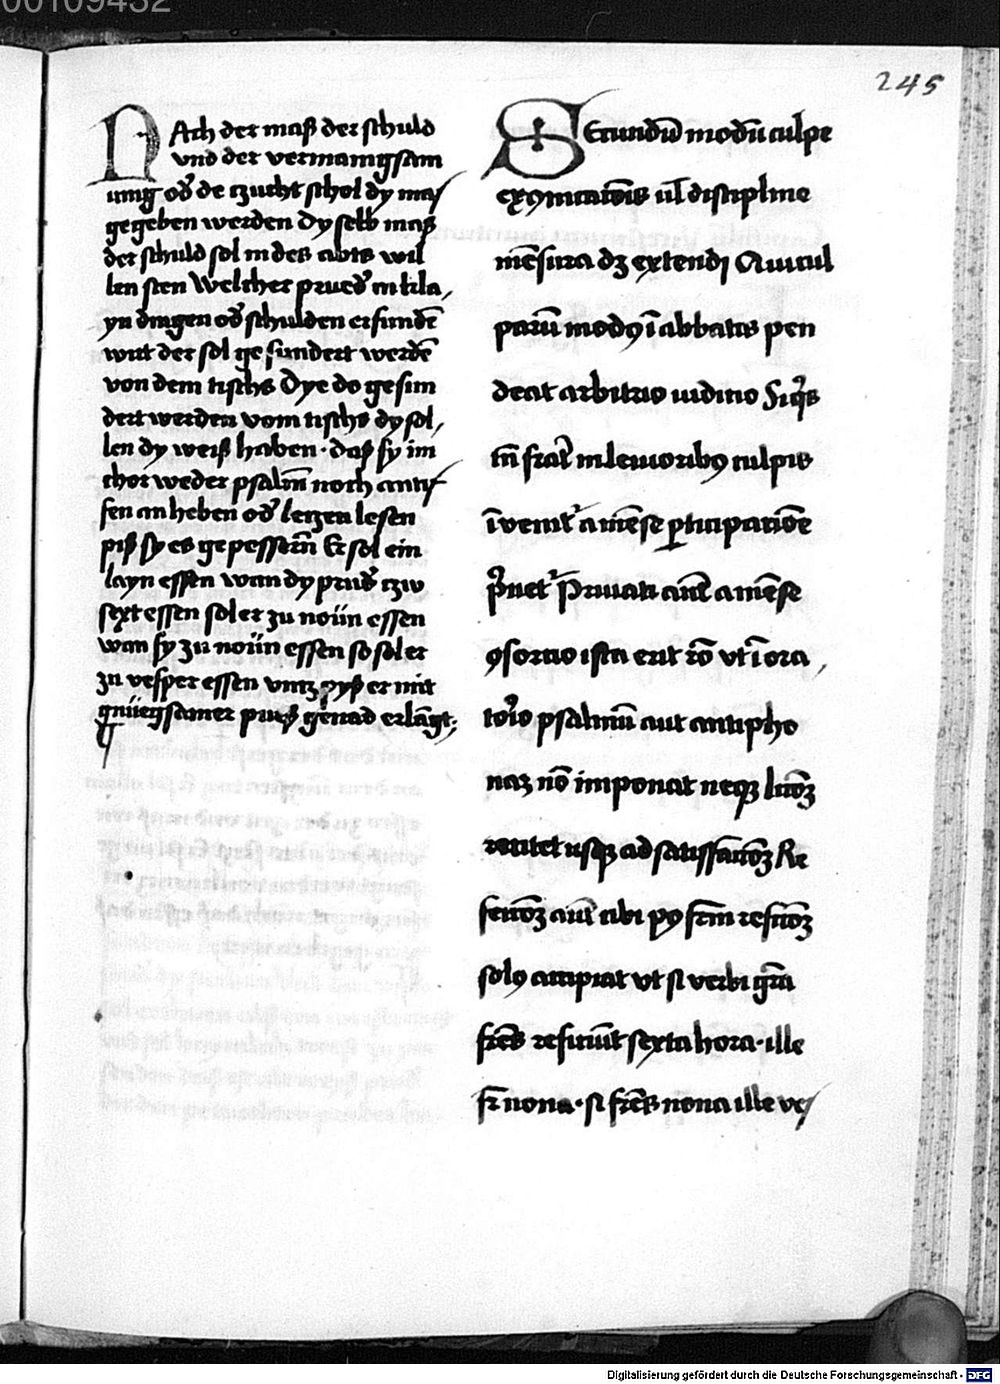 00109432
245
NAch der maß der schuld
vnd der vermanigsam
ung od̓ de tzucht schol dy mas
gegeben werden dy selb maß
der schuld sol in des abts wil
len sten Welcher prued̓ in kla,
yn dingen od̓ schulden erfundē
wirt der sol ge sundert werdē
von dem tischs Dye do gesun
dert werden vom tischs dy sol,
len dy weiß haben · daß sy im
chor weder psalm̄ noch antif
fen an heben od̓ letzen lesen
piß sy es gepessern̄ Er sol ein
layn essen wan dy prud̓ tzw
sext essen sol er zu noün essen
wan sy zu noün essen so sol er
zu vesper essen vntz pyß er mit
gnüegsamer pueß genad erlāgt;
SEcundū modū culpe
exꝯmicatōis ul̄ discipline
mēsura dꝫ extendi Qui cul
parū modꝯ ī abbatis pen
deat arbitrio iudicio Siq̄s
tn̄ frat̓ in leuioribꝯ culpis
īvenit᷑ a mēse ꝑticipatiōe
p̓uet᷑ Priuati aut̄ a mēse
ꝯsortio ista erit rō vt ī ora,
tor̓io psalmū aut antipho
naꝫ nō imponat neqꝫ lc̄oꝫ
recitet usqꝫ ad satisfac̄oꝫ Re
fecc̄oꝫ aut̄ cibi pꝯ frm̄ refcōꝫ
solꝯ accipiat vt si verbi gr̄a
frēs reficiūt sexta hora · ille
fr̄ nona · si frēs nona ille ve
Digitalisierung gefördert durch die Deutsche Forschungsgemeinschaft - DFG